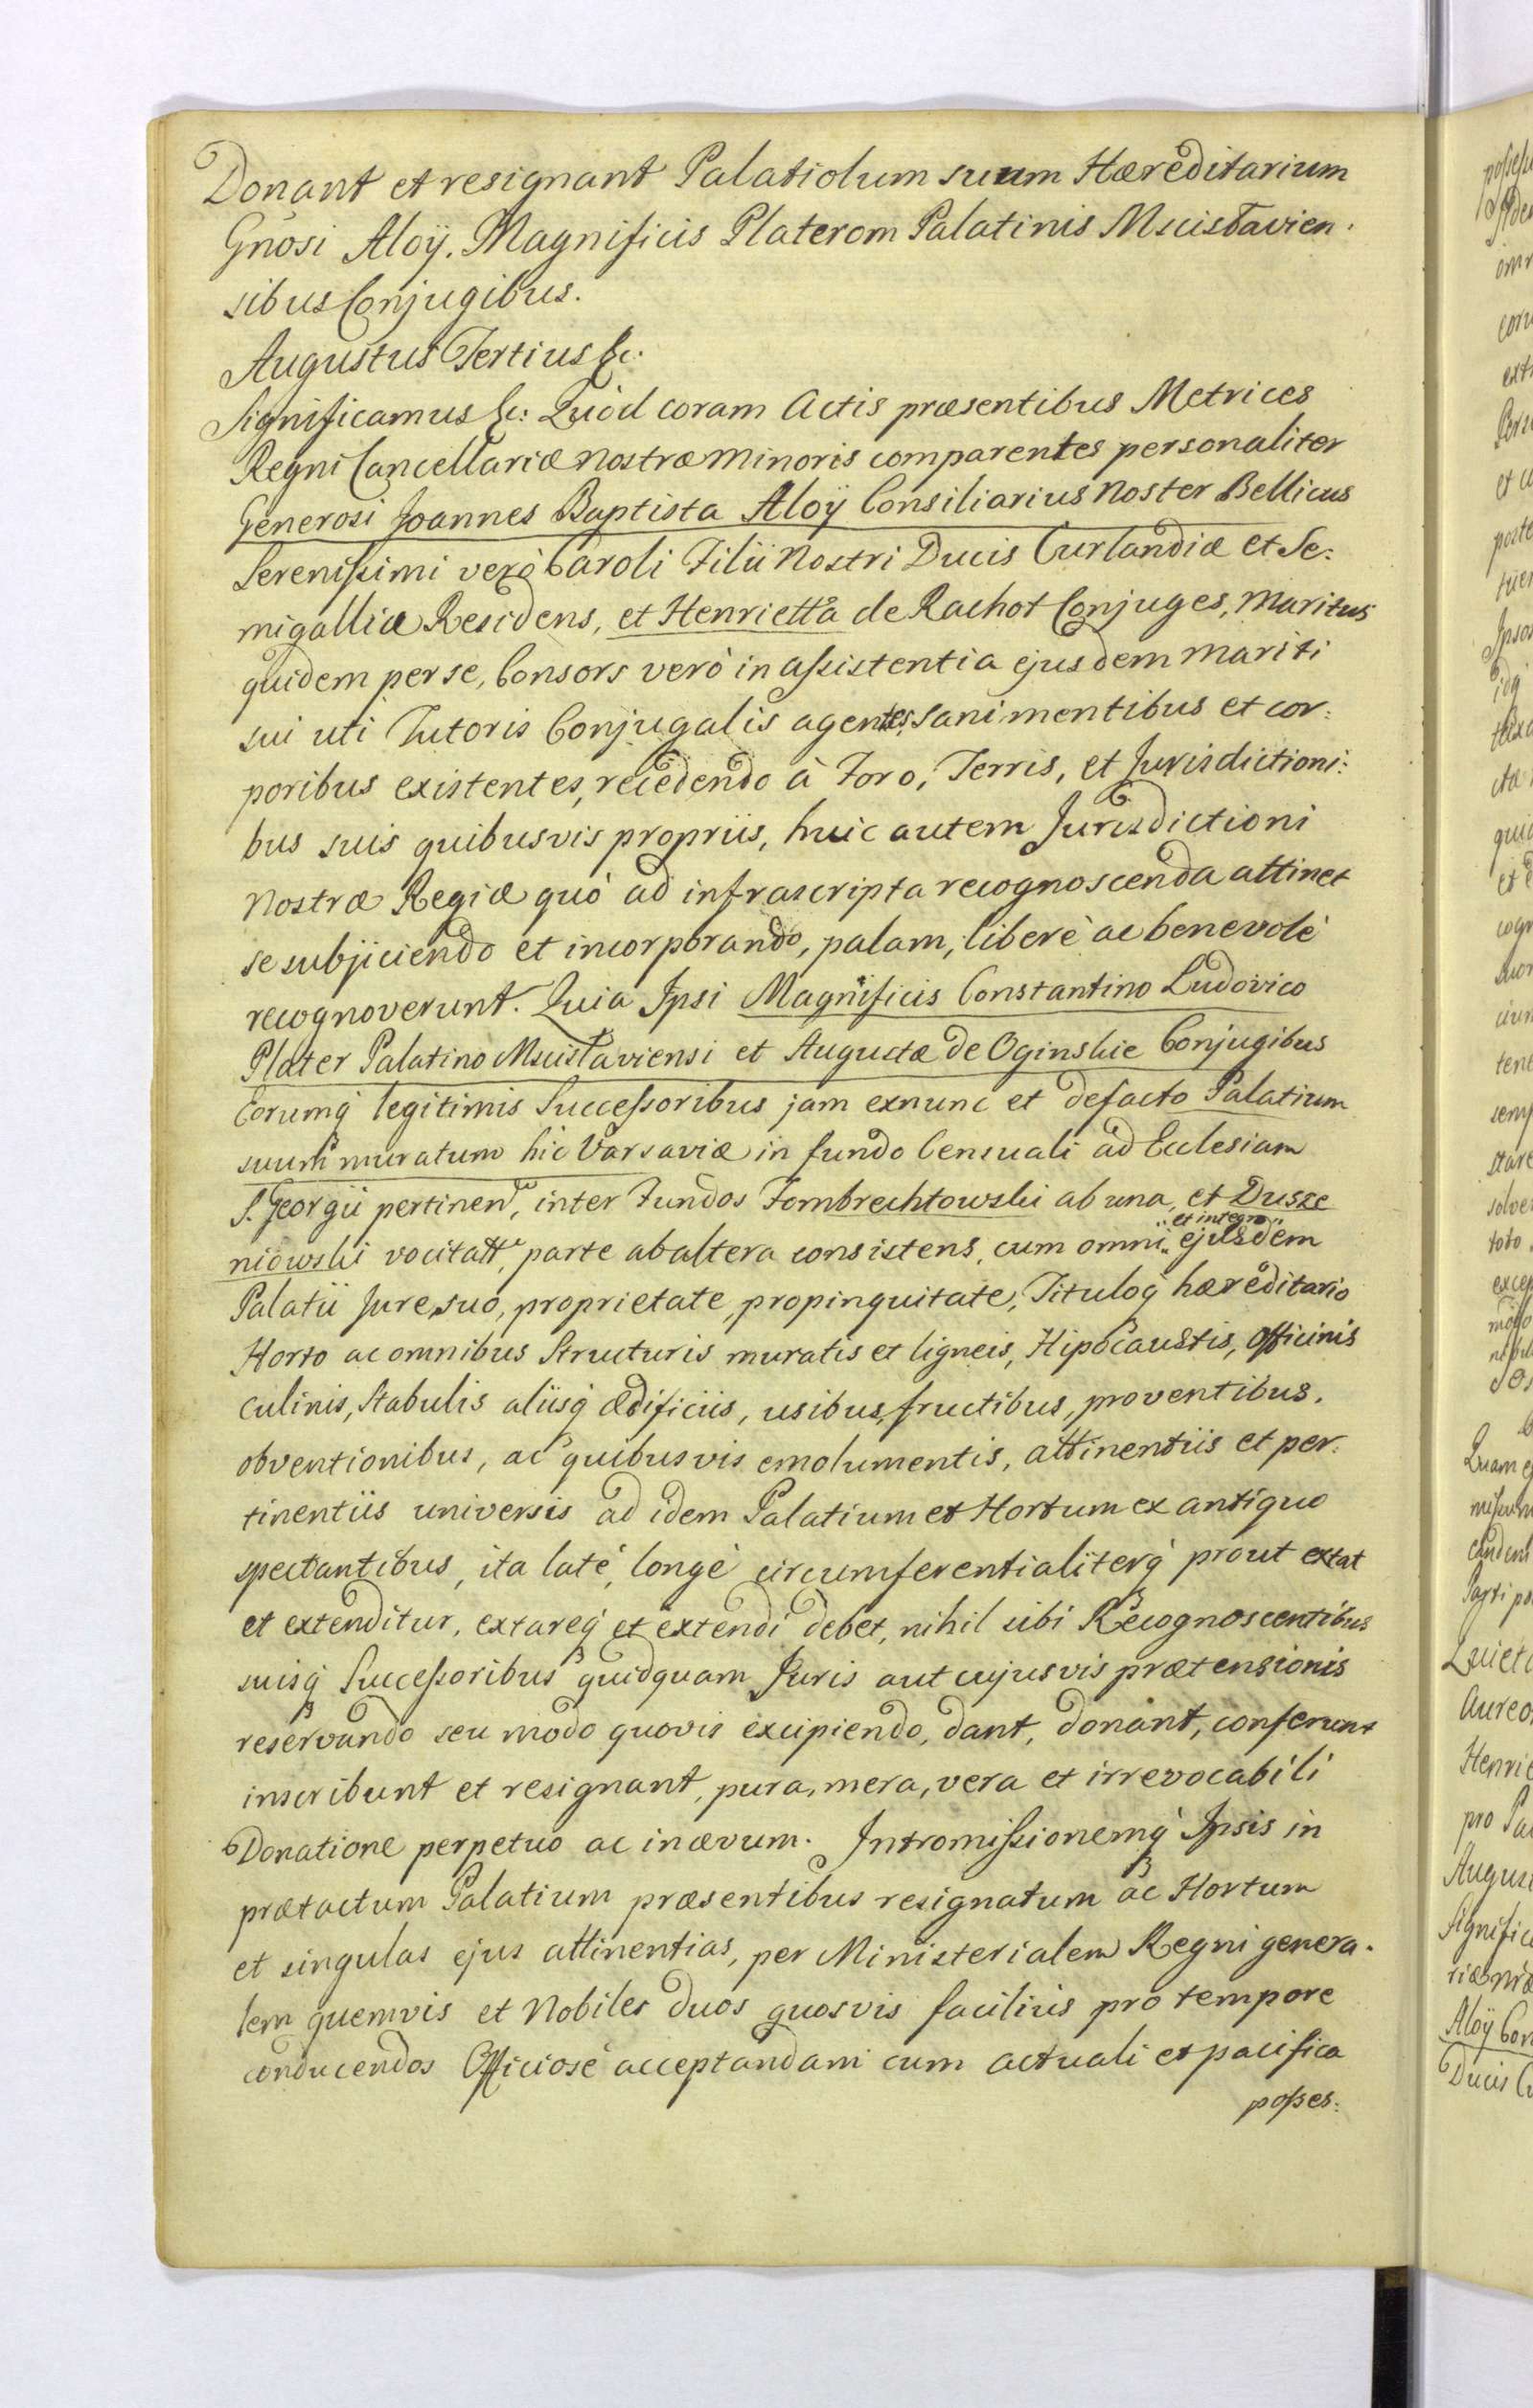 Donant et resignant Palatiolum suum Hæreditarium
Gnosi Aloÿ. Magnificis Platerom Palatinis Mscislavien.
sibus Conjugibus.
Augustus Tertius &c.
Significamus &c: Quòd coram Actis præsentibus Metrices
Regni Cancellariæ nostræ Minoris comparentes personaliter
Generosi Joannes Baptista Aloÿ Consiliarius Noster Bellicus
Serenissimi verò Caroli Filii Nostri Ducis Curlandiæ et Se:
migalliæ Residens, et Henrietta de Rachot Conjuges, Maritus
quidem per se, Consors verò in assistentia ejusdem Mariti
sui uti Tutoris Conjugalis agentes, sani mentibus et cor:
poribus existentes, recedendo à Foro, Terris, et Jurisdictioni:
bus suis quibusvis propriis, huic autem Jurisdictioni
Nostræ Regiæ quò ad infrascripta recognoscenda attinet
se subjiciendo et incorporando, palam, liberè ac benevolè
recognoverunt. Quia Ipsi Magnificis Constantino Ludovico
Plater Palatino Mscislaviensi et Augustæ de Oginskie Conjugibus
Eorumq́ legitimis Successoribus jam exnunc et defacto Palatium
suum muratum hic Varsaviæ in fundo Censuali ad Ecclesiam
S. Georgii pertinen, inter Fundos Fombrechtowski ab una, et Dusze
niowski vocitatt, parte ab altera consistens, cum omni et integro ejusdem
Palatii Jure suo, proprietate, propinquitate, Tituloq́ hæreditario
Horto ac omnibus Structuris muratis et ligneis, Hipocaustis, Officinis
Culinis, Stabulis aliisq́ ædificiis, usibus, fructibus, proventibus,
obventionibus, ac quibusvis emolumentis, attinentiis et per:
tinentiis universis ad idem Palatium et Hortum ex antiquo
spectantibus, ita latè, longè circumferentialiterq́ prout extat
et extenditur, extareq́ et extendi debet, nihil sibi Recognoscentibus
suisq́ Successoribus quidquam Juris aut cujusvis prætensionis
reservando seu modo quovis excipiendo, dant, donant, conferunt
inscribunt et resignant, pura, mera, vera et irrevocabili
Donatione perpetuo ac in ævum. Intromissionemq́ Ipsis in
prætactum Palatium præsentibus resignatum ac Hortum
et singulas ejus attinentias, per Ministerialem Regni genera.
lem quemvis et Nobiles duos quosvis faciliùs pro tempore
conducendos Officiosè acceptandam cum actuali et pacifica
posses: